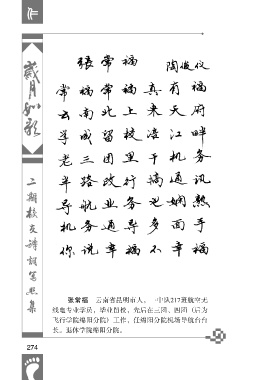 作
岁月如歌
二期校友诗词宝典集
张常福 陶俊仪
常福常福真有福
云南北上来天府
学成留校浯江畔
老三团里干机务
半路改行搞通讯
导航业务也娴熟
机务通导多面手
你说幸福不幸福
张常福 云南省昆明市人。一中队217班航空无
线电专业学员，毕业留校，先后在三团、四团（后为
飞行学院绵阳分院）工作，任绵阳分院机场导航台台
长。退休学院绵阳分院。
274